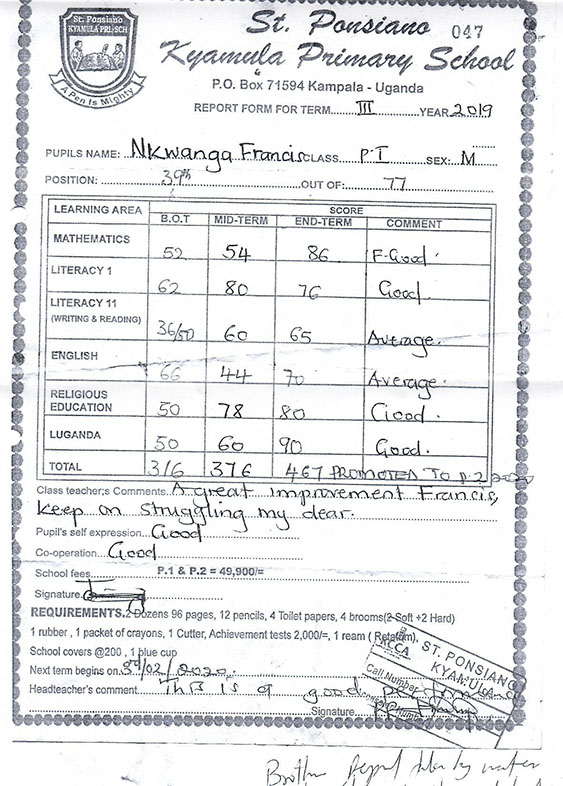 St. Ponsiano
KYAMULA PRI. SCH
A Pen Is Mighty
St. Ponsiano 047
Kyamula Primary School
P.O. Box 71594 Kampala - Uganda
REPORT FORM FOR TERM III YEAR 2019
PUPILS NAME: Nkwanga Francis CLASS P.I SEX: M
POSITION: 39th OUT OF: 77
LEARNING AREA SCORE
B.O.T MID-TERM END-TERM COMMENT
MATHEMATICS 52 54 86 F-Good.
LITERACY 1 62 80 76 Good.
LITERACY 11
(WRITING & READING) 36/50 60 65 Average.
ENGLISH 66 44 70 Average.
RELIGIOUS
EDUCATION 50 78 80 Good.
LUGANDA 50 60 90 Good.
TOTAL 316 376 467 PROMOTED TO P.2 2020
Class teacher;s Comments. A great improvement Francis,
keep on struggling my dear.
Pupil's self expression. Good
Co-operation. Good
School fees P.1 & P.2 = 49,900/=
Signature.
REQUIREMENTS. 2 Dozens 96 pages, 12 pencils, 4 Toilet papers, 4 brooms(2 Soft +2 Hard)
1 rubber , 1 packet of crayons, 1 Cutter, Achievement tests 2,000/=, 1 ream ( Rotatrim).
School covers @200 , 1 blue cup
Next term begins on. 3rd/02/2020.
Headteacher's comment This is a good performance
Signature
KCCA
ST. PONSIANO
KYAMULA
Call Number
Brother Report taken by